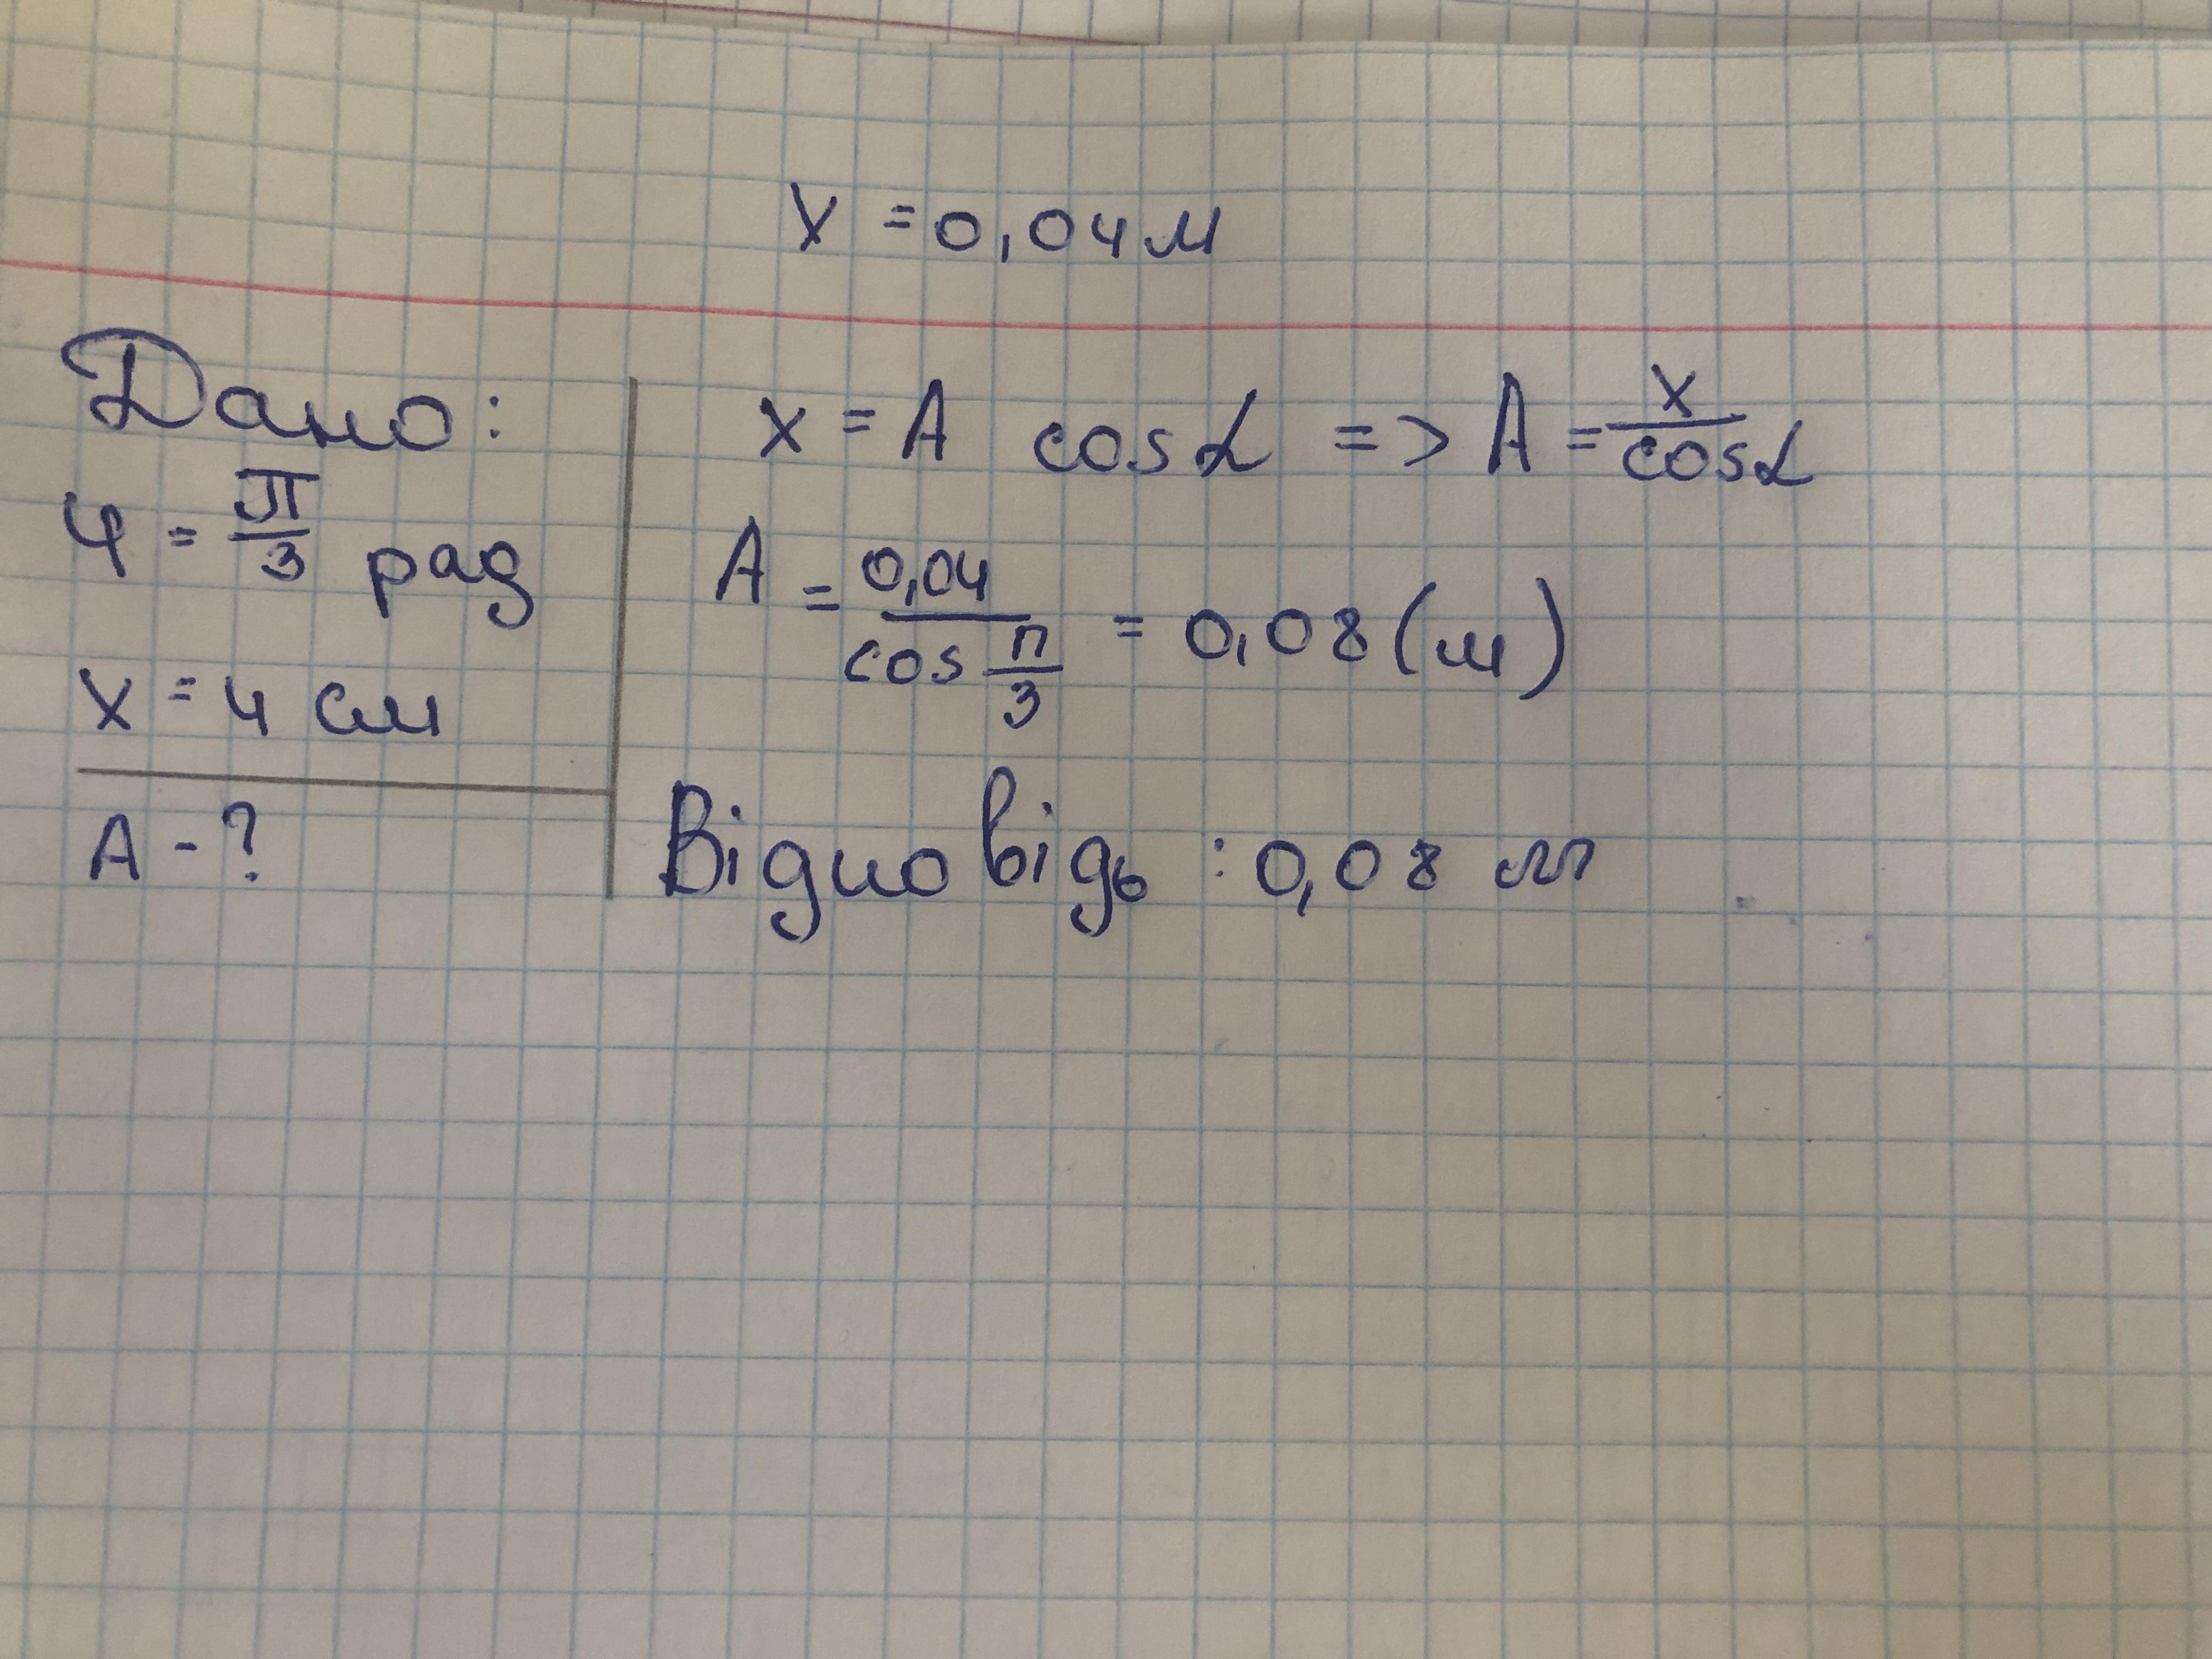 x = 0,04 м
Дано:
φ = π/3 рад
x = 4 см
A - ?
x = A cos α => A = x/cos α
A = 0,04/cos π/3 = 0,08 (м)
Відповідь : 0,08 м